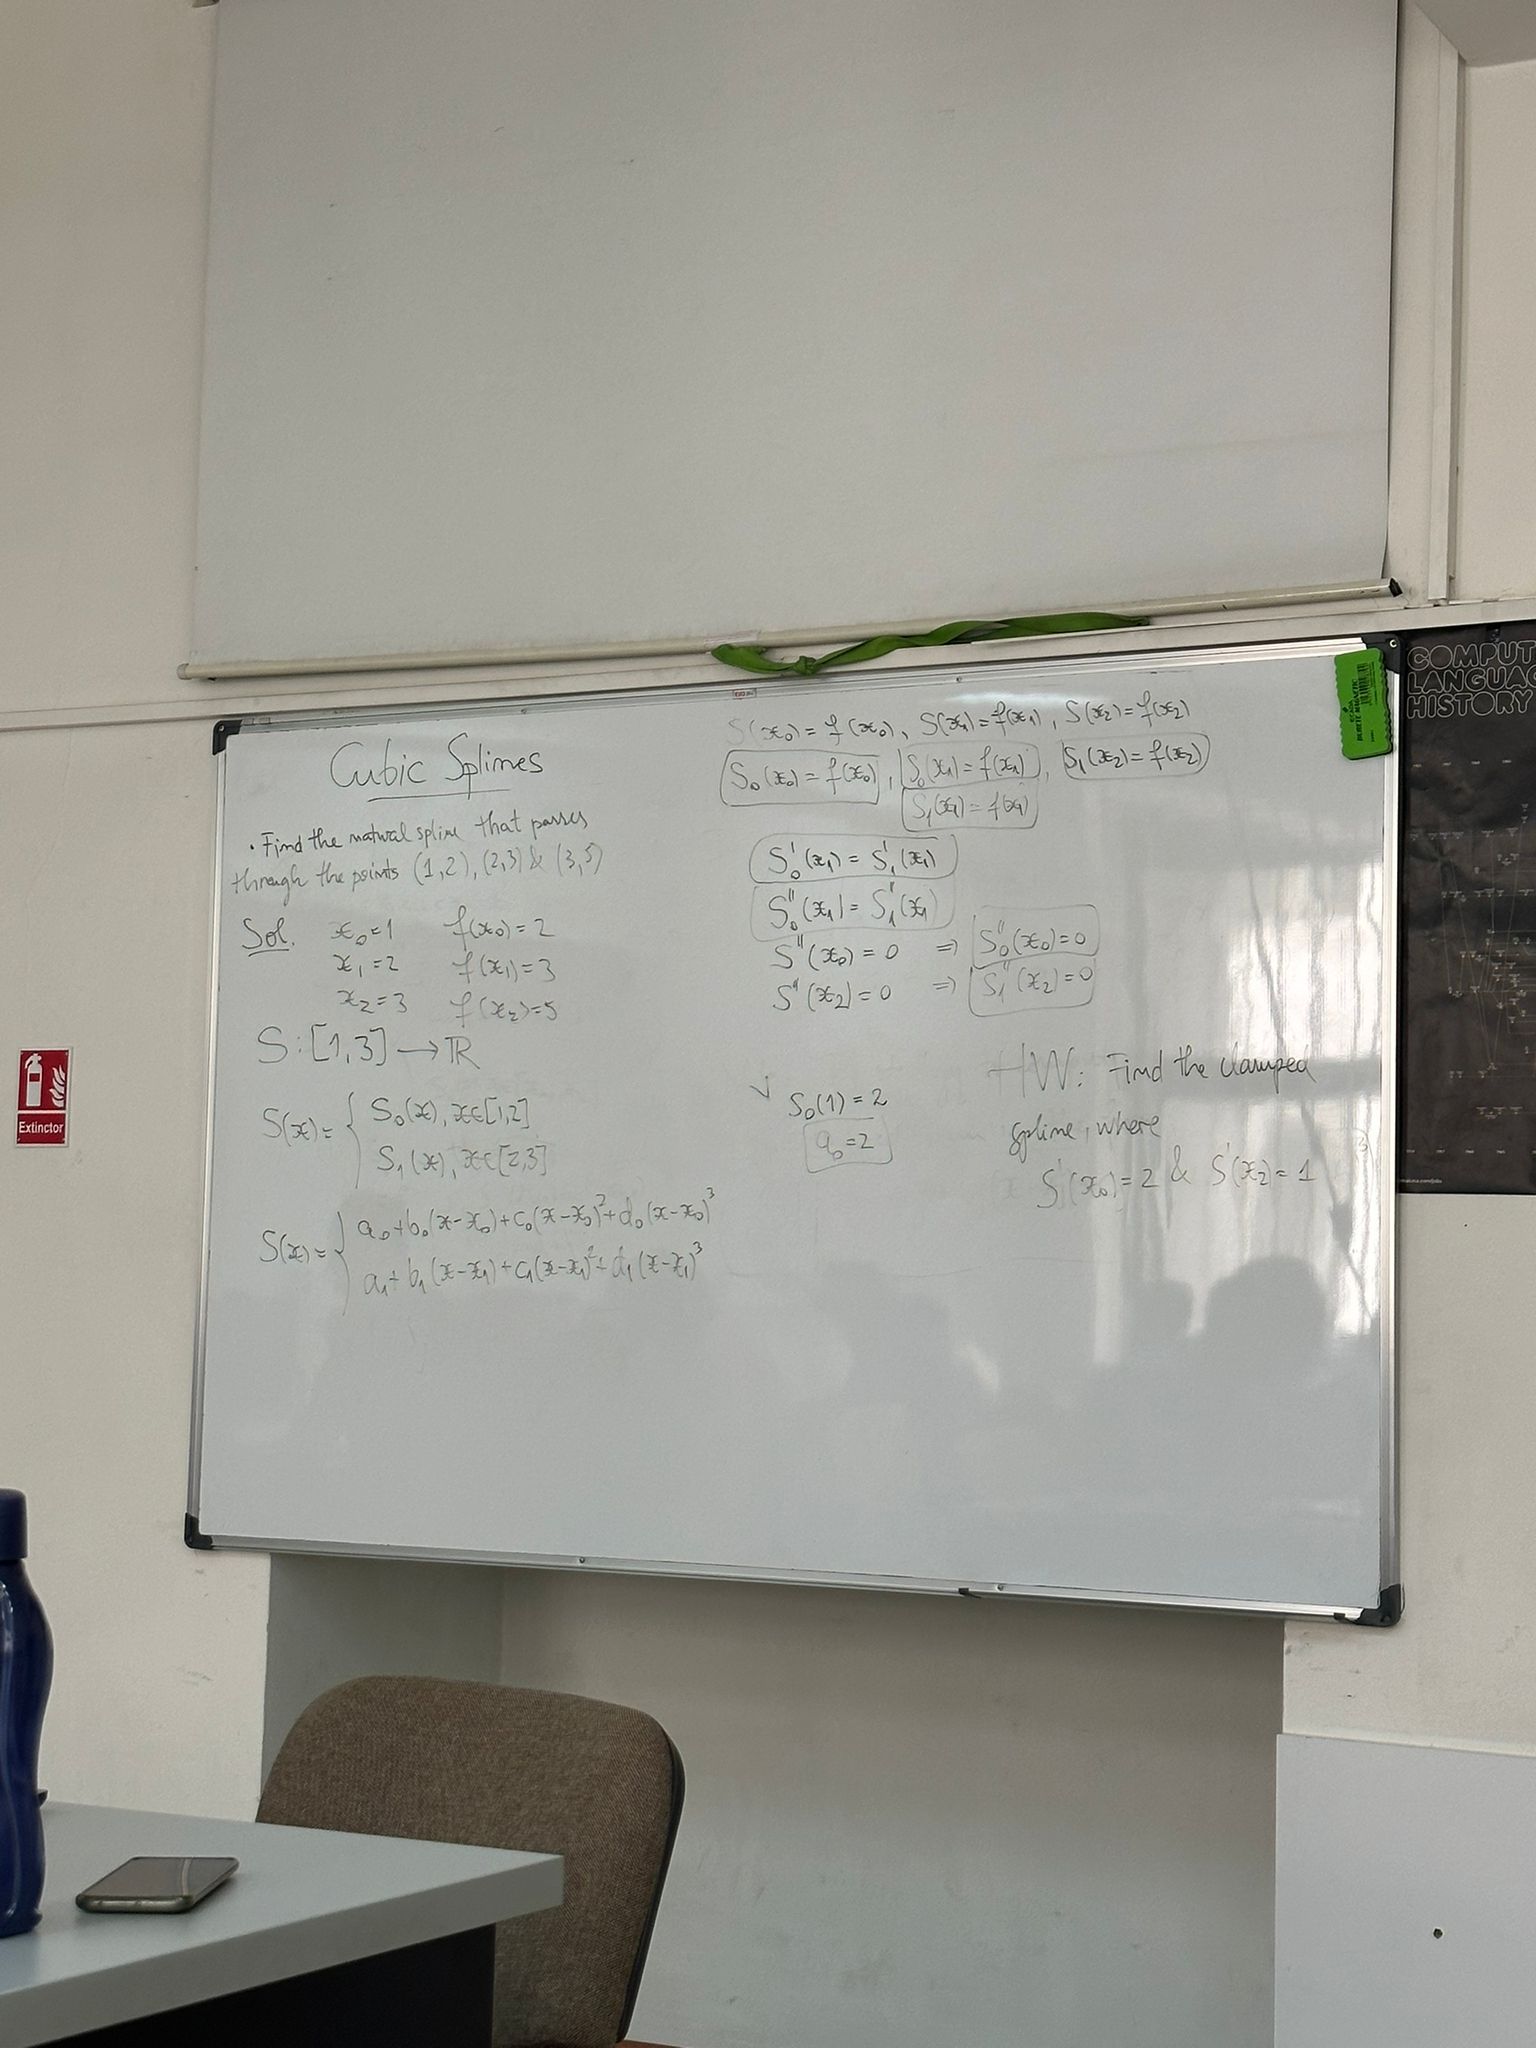 Cubic Splines
• Find the natural spline that passes
through the points (1,2), (2,3) & (3,5)
Sol. x₀=1 f(x₀)=2
x₁=2 f(x₁)=3
x₂=3 f(x₂)=5
S:[1,3]→ℝ
S(x)= { S₀(x), x∈[1,2]
S₁(x), x∈[2,3]
S(x)= { a₀+b₀(x-x₀)+c₀(x-x₀)²+d₀(x-x₀)³
a₁+b₁(x-x₁)+c₁(x-x₁)²+d₁(x-x₁)³
S(x₀)=f(x₀), S(x₁)=f(x₁), S(x₂)=f(x₂)
S₀(x₀)=f(x₀), S₀(x₁)=f(x₁), S₁(x₂)=f(x₂)
S₁(x₁)=f(x₁)
S₀'(x₁)=S₁'(x₁)
S₀''(x₁)=S₁''(x₁)
S''(x₀)=0 ⇒ S₀''(x₀)=0
S''(x₂)=0 ⇒ S₁''(x₂)=0
√ S₀(1)=2
a₀=2
HW: Find the clamped
spline, where
S'(x₀)=2 & S'(x₂)=1
Extinctor
BURETE MAGNETIC
COMPUT
LANGUAG
HISTORY